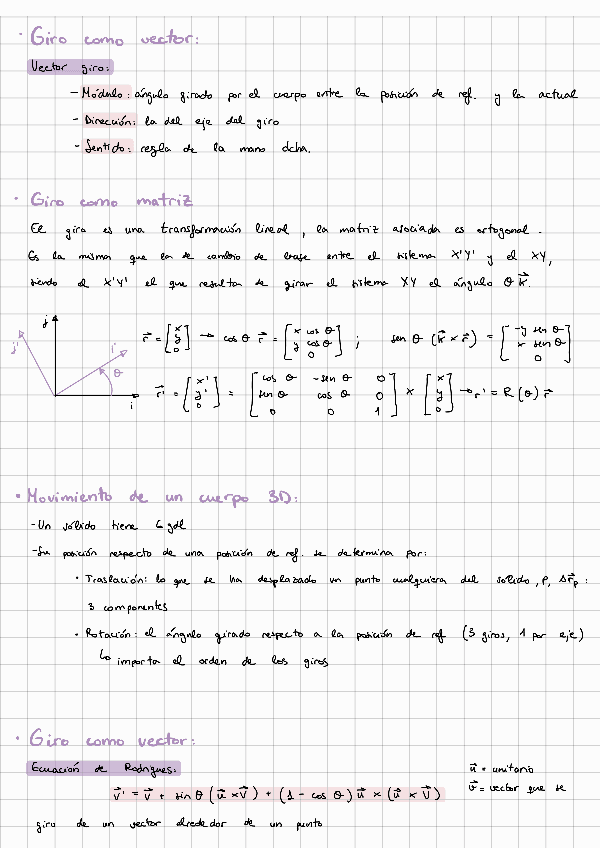 · Giro como vector:
Vector giro:
- Módulo: ángulo girado por el cuerpo entre la posición de ref. y la actual
- Dirección: la del eje del giro
- Sentido: regla de la mano dcha.
· Giro como matriz
El giro es una transformación lineal, la matriz asociada es ortogonal.
Es la misma que la de cambio de base entre el sistema X'Y' y el XY,
siendo el X'Y' el que resulta de girar el sistema XY el ángulo θ k⃗.
j j' i' θ i
r⃗ = [x y 0] → cos θ r⃗ = [x cos θ y cos θ 0] ; sen θ (k⃗ × r⃗) = [-y sen θ x sen θ 0]
r⃗' = [x' y' 0] = [cos θ -sen θ 0 sen θ cos θ 0 0 0 1] × [x y 0] → r' = R(θ) r⃗
· Movimiento de un cuerpo 3D:
- Un sólido tiene 6 gdl
- Su posición respecto de una posición de ref. se determina por:
· Traslación: lo que se ha desplazado un punto cualquiera del solido, P, Δr⃗p :
3 componentes
· Rotación: el ángulo girado respecto a la posición de ref (3 giros, 1 por eje)
↳ importa el orden de los giros
· Giro como vector:
Ecuación de Rodrigues:
v⃗' = v⃗ + sin θ (u⃗ × v⃗) + (1 - cos θ) u⃗ × (u⃗ × v⃗)
u⃗ = unitario
v⃗ = vector que se
giro de un vector alrededor de un punto